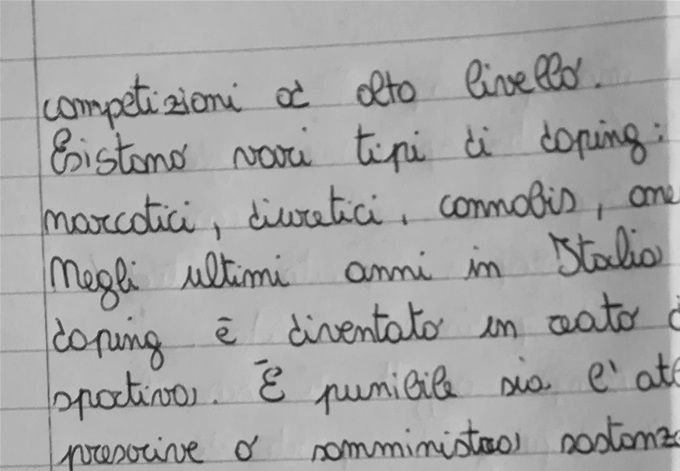 competizioni a alto livello.
Esistono vari tipi di doping:
narcotici, diuretici, cannabis,
Negli ultimi anni in Italia
doping è diventato un reato
sportivo. È punibile sia l'
prescrive o somministra